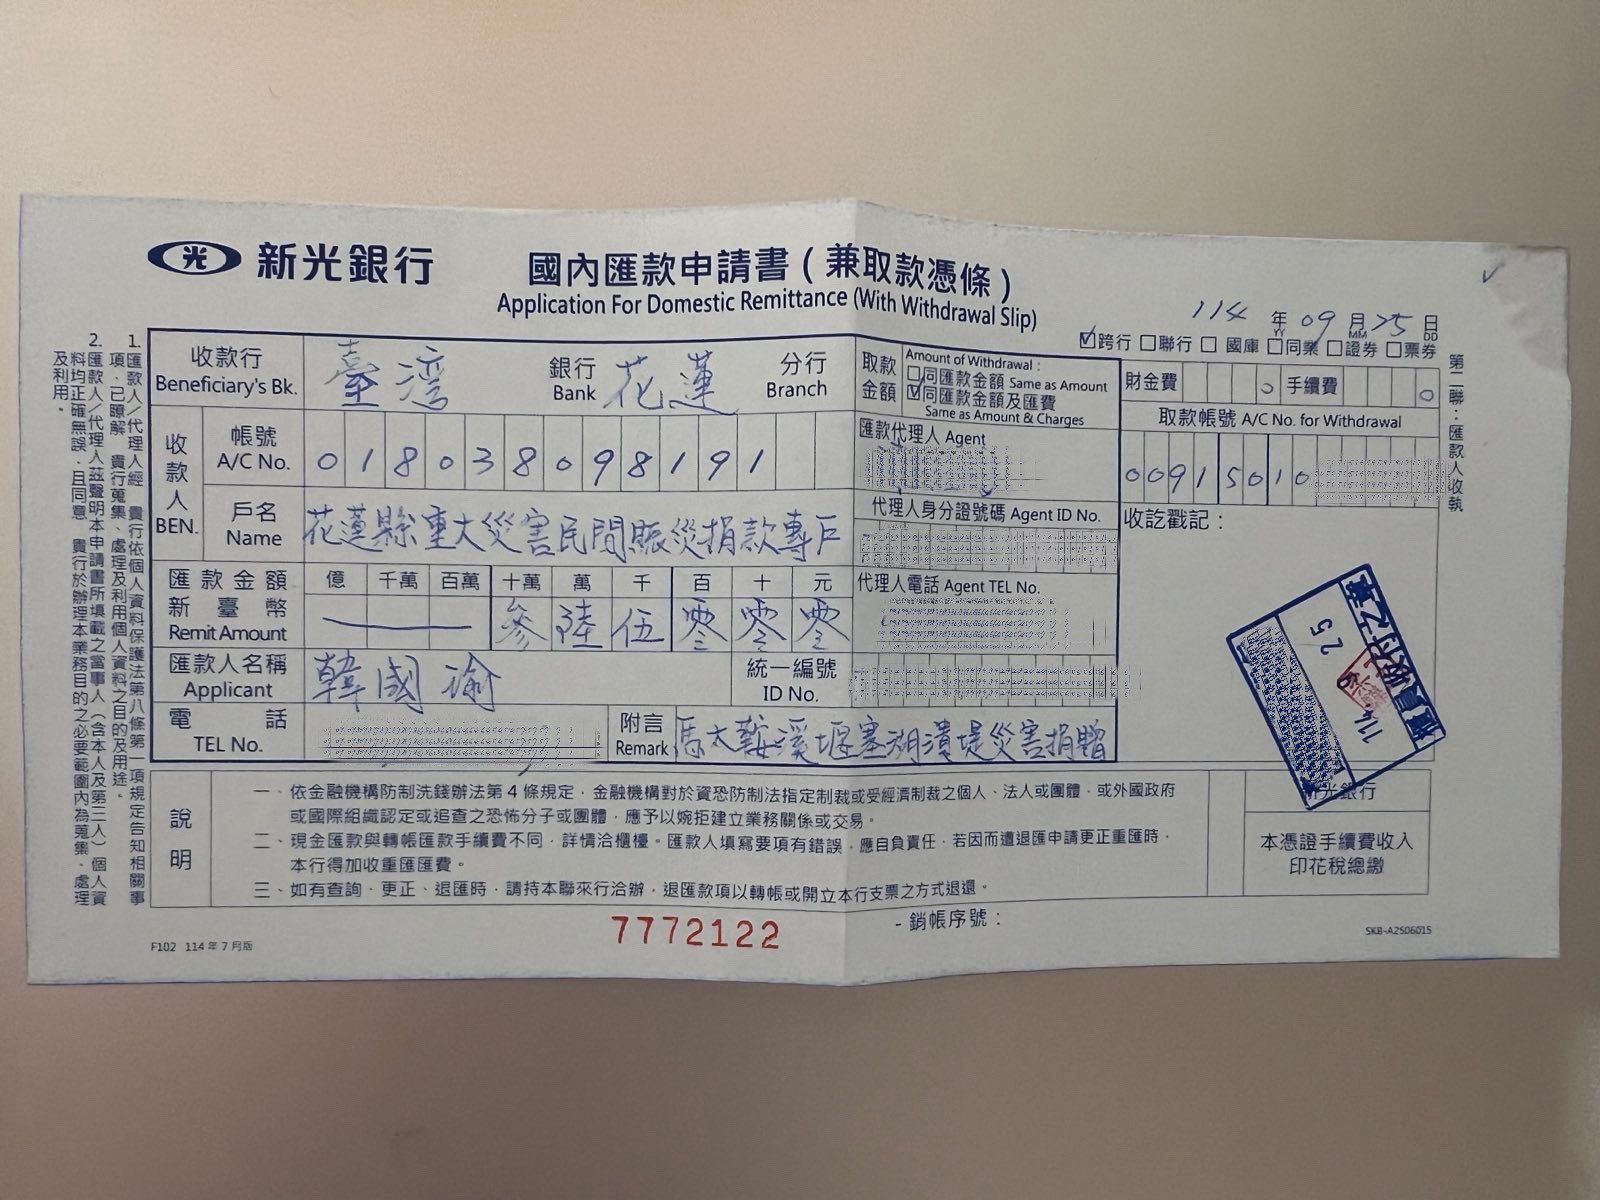 光 新光銀行
國內匯款申請書(兼取款憑條)
Application For Domestic Remittance (With Withdrawal Slip)
114 年 09 月 25 日
YY MM DD
☑跨行 □聯行 □國庫 □同業 □證券 □票券
收款行 臺灣 銀行 花蓮 分行
Beneficiary's Bk. Bank Branch
取款金額
Amount of Withdrawal :
□同匯款金額 Same as Amount
☑同匯款金額及匯費
Same as Amount & Charges
財金費 0 手續費 0
收款人 BEN.
帳號 A/C No. 018038098191
匯款代理人 Agent
取款帳號 A/C No. for Withdrawal
00915010
戶名 Name 花蓮縣重大災害民間賑災捐款專戶
代理人身分證號碼 Agent ID No.
收訖戳記:
匯款金額 億 千萬 百萬 十萬 萬 千 百 十 元
新臺幣 參 陸 伍 零 零 零
Remit Amount
代理人電話 Agent TEL No.
匯款人名稱 韓國瑜
Applicant
統一編號
ID No.
電話
TEL No.
附言 馬太鞍溪堰塞湖潰堤災害捐贈
Remark
114
25
說明
一、依金融機構防制洗錢辦法第4條規定,金融機構對於資恐防制法指定制裁或受經濟制裁之個人、法人或團體,或外國政府
或國際組織認定或追查之恐怖分子或團體,應予以婉拒建立業務關係或交易。
二、現金匯款與轉帳匯款手續費不同,詳情洽櫃檯。匯款人填寫要項有錯誤,應自負責任,若因而遭退匯申請更正重匯時,
本行得加收重匯匯費。
三、如有查詢、更正、退匯時,請持本聯來行洽辦,退匯款項以轉帳或開立本行支票之方式退還。
新光銀行
本憑證手續費收入
印花稅總繳
7772122
-銷帳序號:
F102 114年7月版
SKB-A2506015
第二聯:匯款人收執
1.匯款人/代理人經 貴行依個人資料保護法第八條第一項規定告知相關事
項,已瞭解 貴行蒐集、處理及利用個人資料之目的及用途。
2.匯款人/代理人茲聲明本申請書所填載之當事人(含本人及第三人)個人資
料均正確無誤,且同意 貴行於辦理本業務目的之必要範圍內為蒐集、處理
及利用。